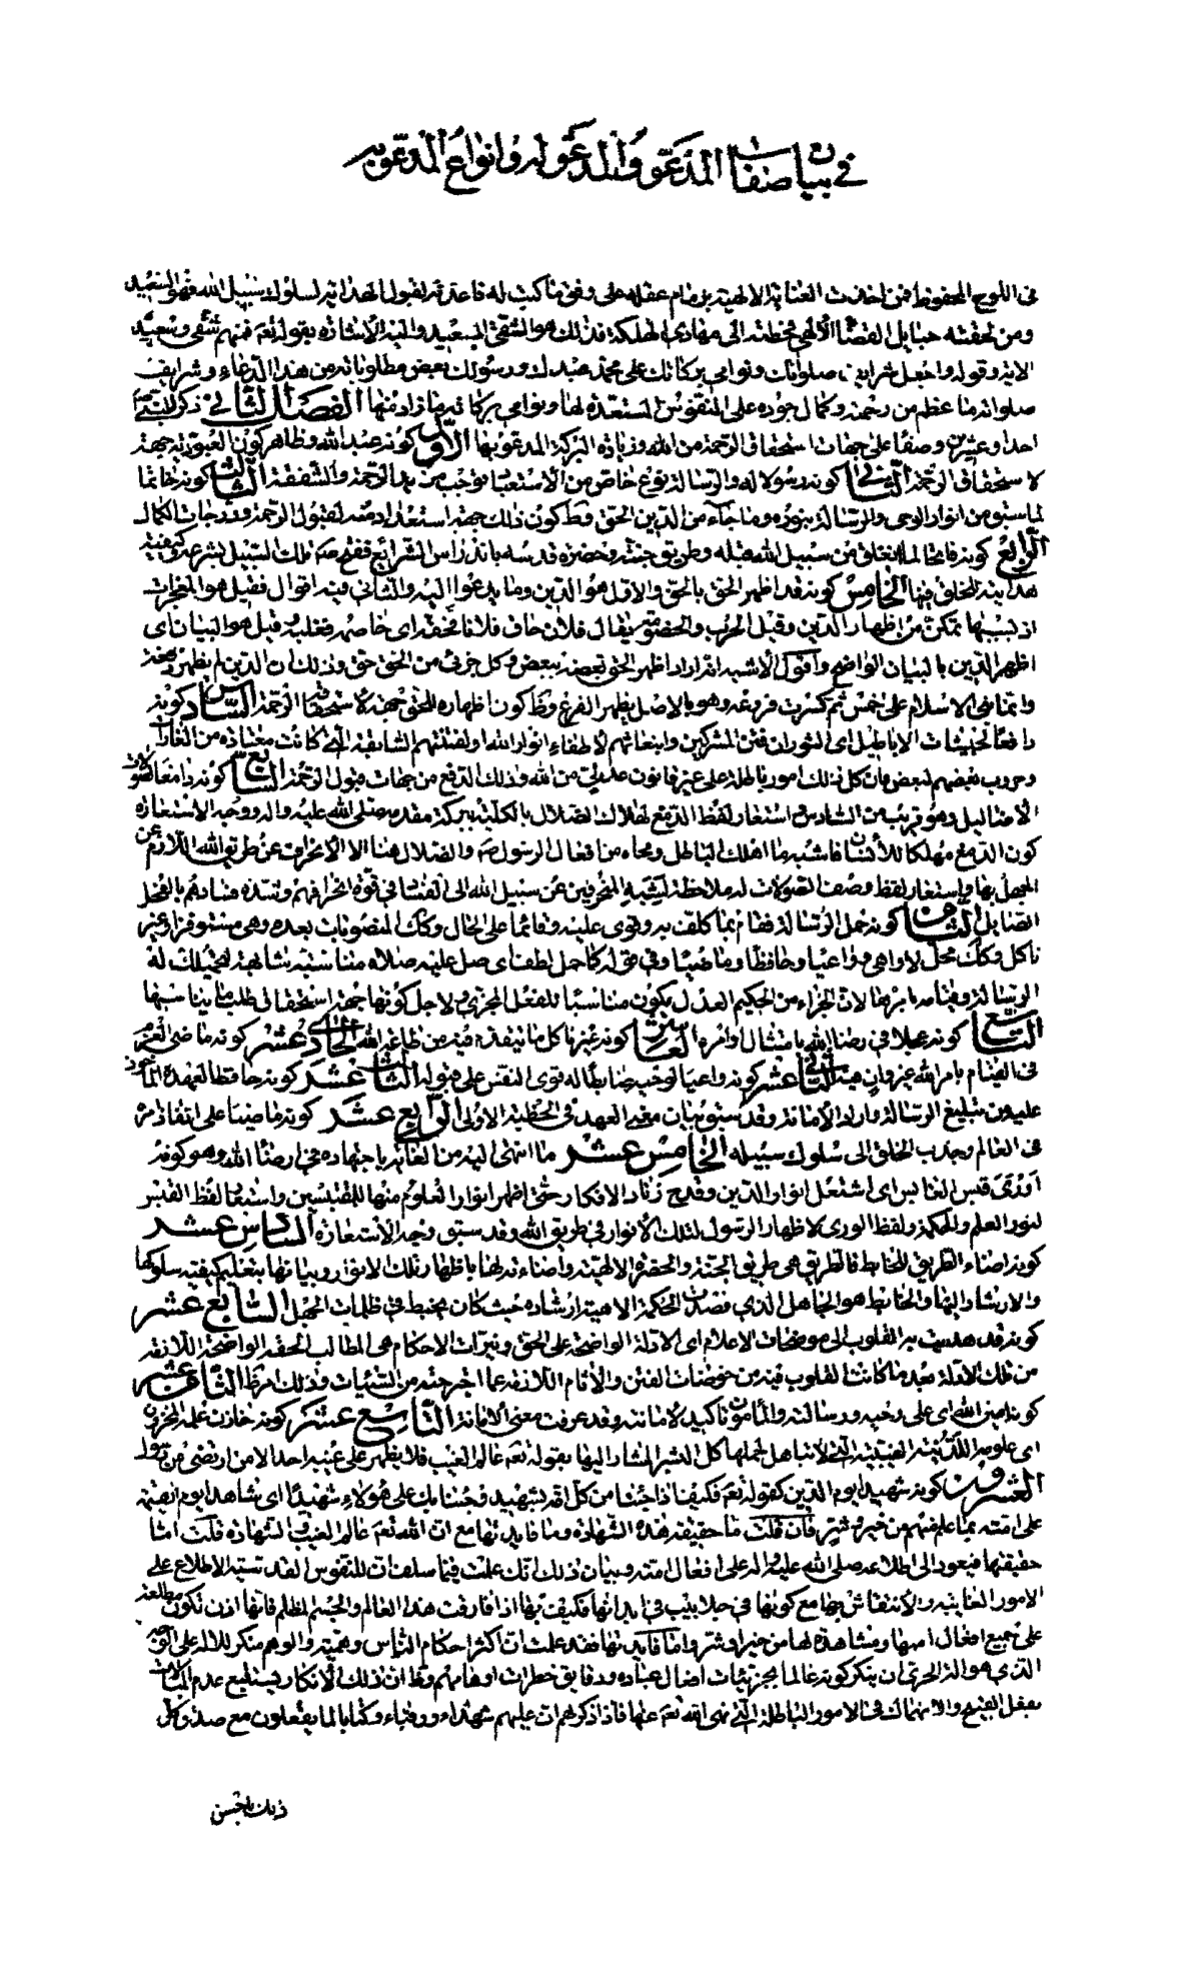 في بيان صفات المدعو والمدعو له وانواع المدعو به
في اللوح المحفوظ فمن اخذت العناية الالهية بزمام عقله على وفق ما كتب له قاعدته لقبول الهداية لسلوك سبيل الله فهو السعيد
ومن لحقته حبايل القضاء الالهي فحطته الى مهاوي الهلكة فذلك هو الشقي البعيد واليه الاشارة بقوله تعم فمنهم شقي وسعيد
الاية وقوله واجعل شرايف صلواتك ونوامي بركاتك على محمد عبدك ورسولك بعض مطلوباته من هذا الدعاء وشرايف
صلواته ما عظم من رحمته وكمال جوده على النفوس المستعدة لها ونوامي بركاته ما زاد منها الفصل الثاني ذكر للنبي ص
احدا وعشرين وصفا على جهات استحقاق الرحمة من الله وزيادة البركة المدعو بها الاول كونه عبد الله وظاهر كون العبودية جهة
لاستحقاق الرحمة الثاني كونه رسولا له والرسالة نوع خاص من الاستعباد يوجب مزيد الرحمة والشفقة الثالث كونه خاتما
لما سبق من انوار الوحي والرسالة بنوره وما جاء من الدين الحق وظ كون ذلك جهة استعداد منه لقبول الرحمة ودرجات الكمال
الرابع كونه فاتحا لما انغلق من سبيل الله قبله وطريق جنته وحضرة قدسه باندراس الشرايع ففتح ص تلك السبيل بشرعه وكيفية
هداية الخلق فيها الخامس كونه قد اظهر الحق بالحق والاول هو الدين وما يدعوا اليه والثاني فيه اقوال فقيل هو المعجزات
اذ بسببها تمكن من اظهار الدين وقيل الحرب والخصومة يقال فلان حاق فلانا فحقه اى خاصمه فغلبه وقيل هو البيان اى
اظهر الدين بالبيان الواضح واقول الاشبه انه اراد اظهر الحق بعضه ببعض وكل جزئي من الحق حق وذلك ان الدين لم يظهر دفعة
وانما بني الاسلام على خمس ثم كثرت فروعه وهو بالاصل يظهر الفرع وظ كون اظهاره للحق جهة لاستحقاق الرحمة السادس كونه
دافعا لجيشات الاباطيل اى لثوران فتن المشركين وانبعاثهم لاطفاء انوار الله او لفتنهم السابقة التي كانت معتادة من الغارات
وحروب بعضهم لبعض فان كل ذلك امور باطلة على غير قانون عدلي من الله وذلك الدفع من جهات قبول الرحمة السابع كونه دامغا لصولات
الاضاليل وهو قريب من السادس استعار لفظ الدمغ لهلاك الضلال بالكلية ببركة مقدمه صلى الله عليه واله ووجه الاستعارة
كون الدمغ مهلكا للانسان فاشبه ما اهلك الباطل ومحاه من افعال الرسول ص والضلال هنا الانحراف عن طريق الله اللازم عن
الجهل بها واستعار لفظ وصف الصولات له ملاحظة لشبه المنحرفين عن سبيل الله الى الفساد في قوة انحرافهم وشدة فسادهم بالفحل
الصايل الثامن كونه حمل الرسالة فقام بما كلف به وقوى عليه وقائما على الحال وكذلك المنصوبات بعده وهي مستوفزا وغير
ناكل وكذلك محل لا واهي وواعيا وحافظا وماضيا وفي قوله كما حمل لطف اى صل عليه صلاة مناسبة مشابهة لتحميلك له
الرسالة وقيامه بامرها لان الجزاء من الحكيم العدل يكون مناسبا للفعل المجزي ولاجل كونها جهة استحقاق طلب ما يناسبها
التاسع كونه عجلا في رضا الله بامتثال اوامره العاشر كونه غير ناكل ما نيفده فيه من طاعة الله الحادي عشر كونه ماضي العزم
في القيام بامر الله غير وان فيه الثاني عشر كونه واعيا لوحيه ضابطا له قوى النفس على قبوله الثالث عشر كونه حافظا لعهده الماخوذ
عليه من تبليغ الرسالة واداء الامانة وقد سبق بيان معنى العهد في الخطبة الاولى الرابع عشر كونه ماضيا على انفاذ امره
في العالم وجذب الخلق الى سلوك سبيله الخامس عشر ما انتهى اليه من الغاية باجتهاده في ارضاء الله وهو كونه
اورى قبس القابس اى اشتعل انوار الدين وقدح زناد الافكار حتى اظهر انوار العلوم منها للمقتبسين واستعار لفظ القبس
لنور العلم والحكمة ولفظ الورى لاظهار الرسول لتلك الانوار في طريق الله وقد سبق وجه الاستعارة السادس عشر
كونه اضاء الطريق للخابط فالطريق هي طريق الجنة والحضرة الالهية واضاءته لها باظهار تلك الانوار وبيانها بتعليم كيفية سلوكها
والارشاد اليها والخابط هو الجاهل الذي قصدت الحكمة الالهية ارشاده حيث كان يخبط في ظلمات الجهل السابع عشر
كونه قد هديت به القلوب الى موضحات الاعلام اى الادلة الواضحة على الحق ونيرات الاحكام هي المطالب الحقة الواضحة اللازمة
من تلك الادلة بعد ما كانت القلوب فيه من خوضات الفتن والاثام اللازمة عما اجترحته من السيئات وذلك امر ظ الثامن عشر
كونه امين الله اى على وحيه ورسالته والمامون تاكيد لامانته وقد عرفت معنى الامانة التاسع عشر كونه خازن علمه المخزون
اى علومه اللدنية الغيبية التي لا يتاهل لحملها كل البشر المشار اليها بقوله تعم عالم الغيب فلا يظهر على غيبه احدا الا من ارتضى من رسول
العشرون كونه شهيدا يوم الدين كقوله تعم فكيف اذا جئنا من كل امة بشهيد وجئنا بك على هؤلاء شهيدا اى شاهدا يوم القيمة
على امته بما علم منهم من خير وشر فان قلت ما حقيقة هذه الشهادة وما فايدتها مع ان الله تعم عالم الغيب والشهادة قلت اما
حقيقتها فيعود الى اطلاعه صلى الله عليه واله على افعال امته وبيان ذلك انك علمت فيما سلف ان للنفوس القدسية الاطلاع على
الامور الغايبة والانتقاش بها مع كونها في جلابيب في ابدانها فكيف بها اذا فارقت هذا العالم والجسم المظلم فانها اذن تكون مطلعة
على جميع افعال اممها ومشاهدة لها من خير او شر واما فايدتها فقد علمت ان اكثر احكام الناس وهمية والوهم منكر للاله على الوجه
الذي هو اله فبالحري ان ينكر كونه عالما بجزئيات افعال عباده ودقايق خطرات اوهامهم وظ ان ذلك الانكار يستتبع عدم المبالاة
بفعل القبيح والانهماك في الامور الباطلة التي نهى الله تعم عنها فاذا ذكر لهم ان عليهم شهداء ورقباء وكتابا لما يفعلون مع صدق كل
ذلك باحسن